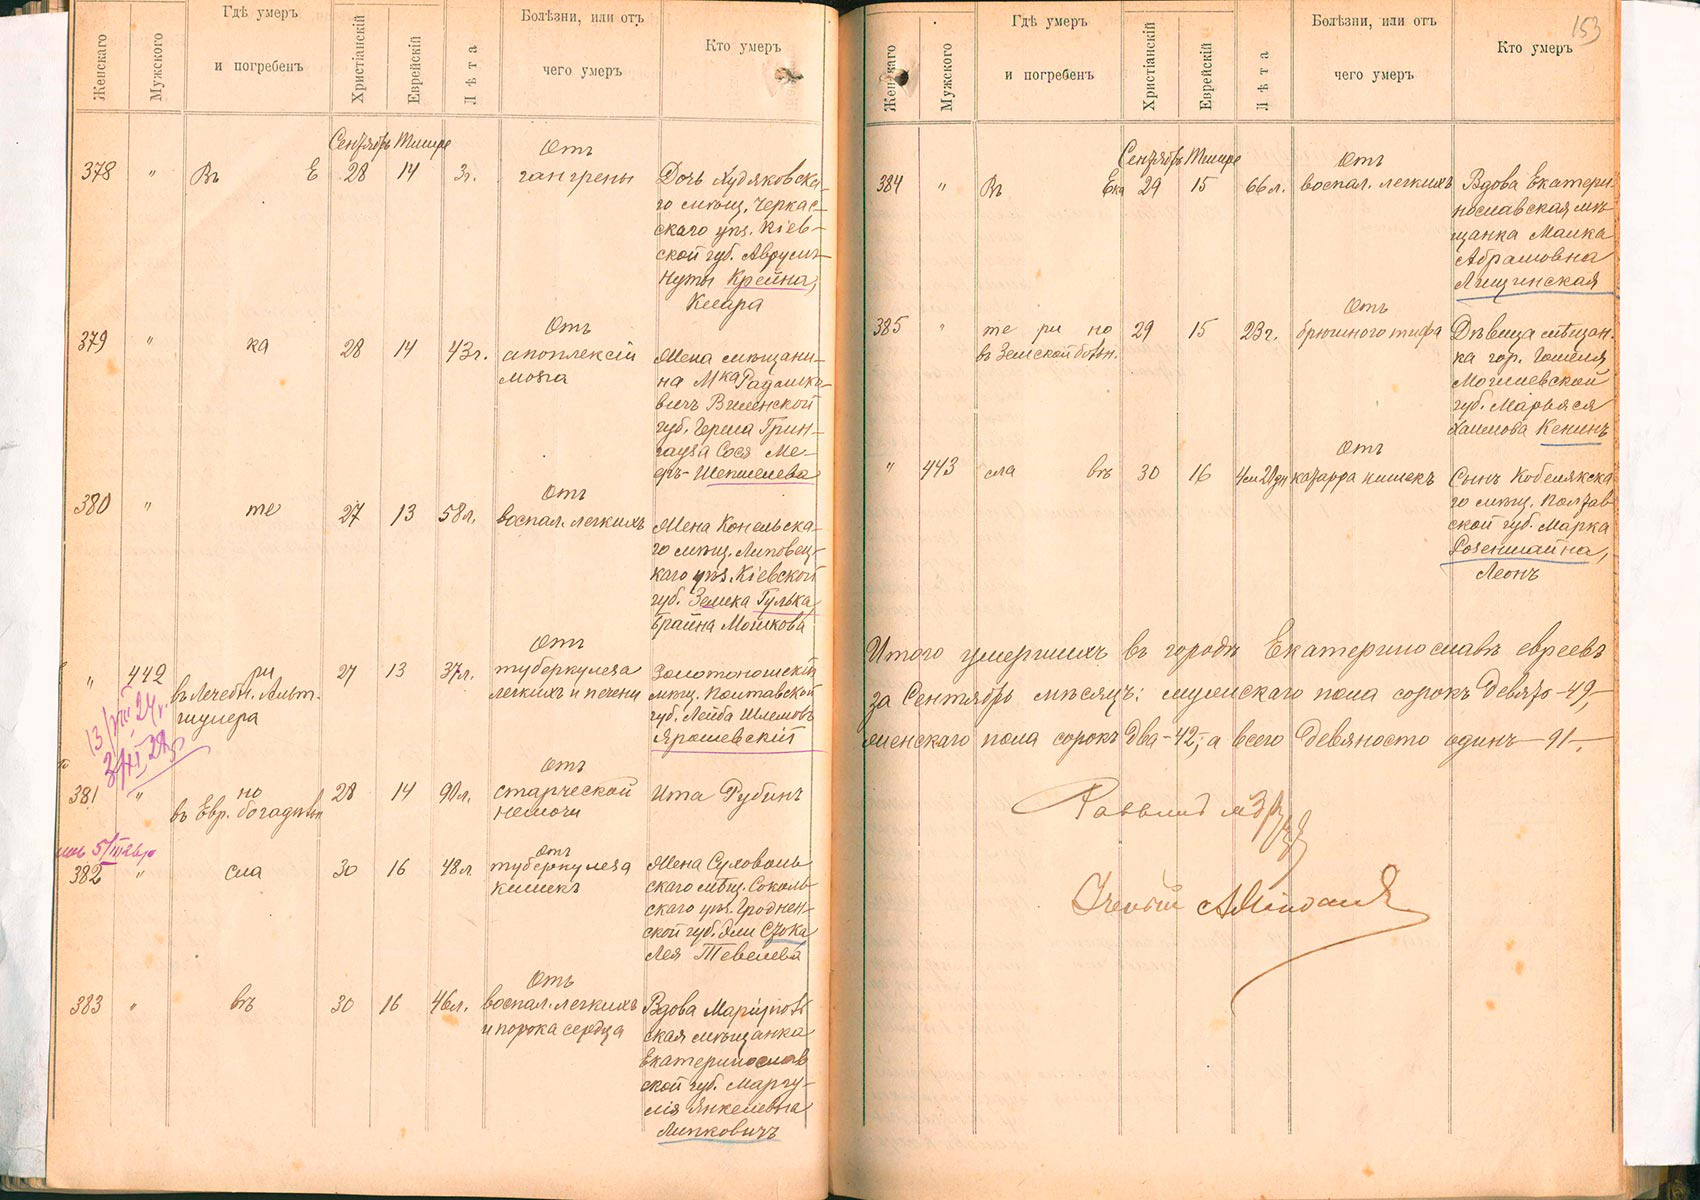 Женскаго
Мужского
Гдѣ умеръ
и погребенъ
Христіанскій
Еврейскій
Лѣта
Болѣзни, или отъ
чего умеръ
Кто умеръ
Сентябрь Тишре
378 " Въ Е 28 14 3г.
Отъ
гангрены
Дочь Худяковска-
го мѣщ. Черкас-
скаго уѣз. Кіев-
ской губ. Аврумъ-
Нуты Крейна,
Клара
379 " ка 28 14 43г.
Отъ
апоплексіи
мозга
Жена мѣщани-
на Мка Радошко-
вичъ Виленской
губ. Герша Грин-
гауза Сося Ме-
ръ-Шепшелева
380 " те 27 13 58л.
Отъ
воспал. легкихъ
Жена Конельска-
го мѣщ. Липовец-
каго уѣз. Кіевской
губ. Зелика Гулька
Брайна Мошкова
" 442 ри 27 13 37л.
въ Лечебн. Альт-
шулера
Отъ
туберкулеза
легкихъ и печени
Золотоношскій
мѣщ. Полтавской
губ. Лейба Шлемовъ
Ярошевскій
381 " но 28 14 90л.
въ Евр. богадѣльн
Отъ
старческой
немочи
Ита Рубинъ
382 " сла 30 16 48л
Отъ
туберкулеза
кишекъ
Жена Суховоль-
скаго мѣщ. Соколь-
скаго уѣз. Гроднен-
ской губ. Эли
Лея Тевелева
383 " въ 30 16 46л.
Отъ
воспал. легкихъ
и порока сердца
Вдова Маріупольс
ская мѣщанка
Екатеринослав
ской губ. Маргу-
лія Янкелевна
Липковичъ
153
Женскаго
Мужского
Гдѣ умеръ
и погребенъ
Христіанскій
Еврейскій
Лѣта
Болѣзни, или отъ
чего умеръ
Кто умеръ
Сентябрь Тишре
384 " Въ Ека 29 15 66л.
Отъ
воспал. легкихъ
Вдова Екатери-
нославская мѣ-
щанка Малка
Абрамовна
Лищинская
385 " те ри но 29 15 23г.
въ Земской больн.
Отъ
брюшного тифа
Дѣвица мѣщан-
ка гор. Гомеля
Могилевской
губ. Марьяся
Хаимова Кенинъ
" 443 сла въ 30 16 4м 20дн
Отъ
катарра кишекъ
Сынъ Кобелякска
го мѣщ. Полтав-
ской губ. Марка
Розенштайна,
Леонъ
Итого умершихъ въ городѣ Екатеринославѣ евреевъ
за Сентябрь мѣсяцъ: мужскаго пола сорокъ девять -49,-
женскаго пола сорокъ два -42,- а всего девяносто одинъ -91-.
Раввинъ
Ученый